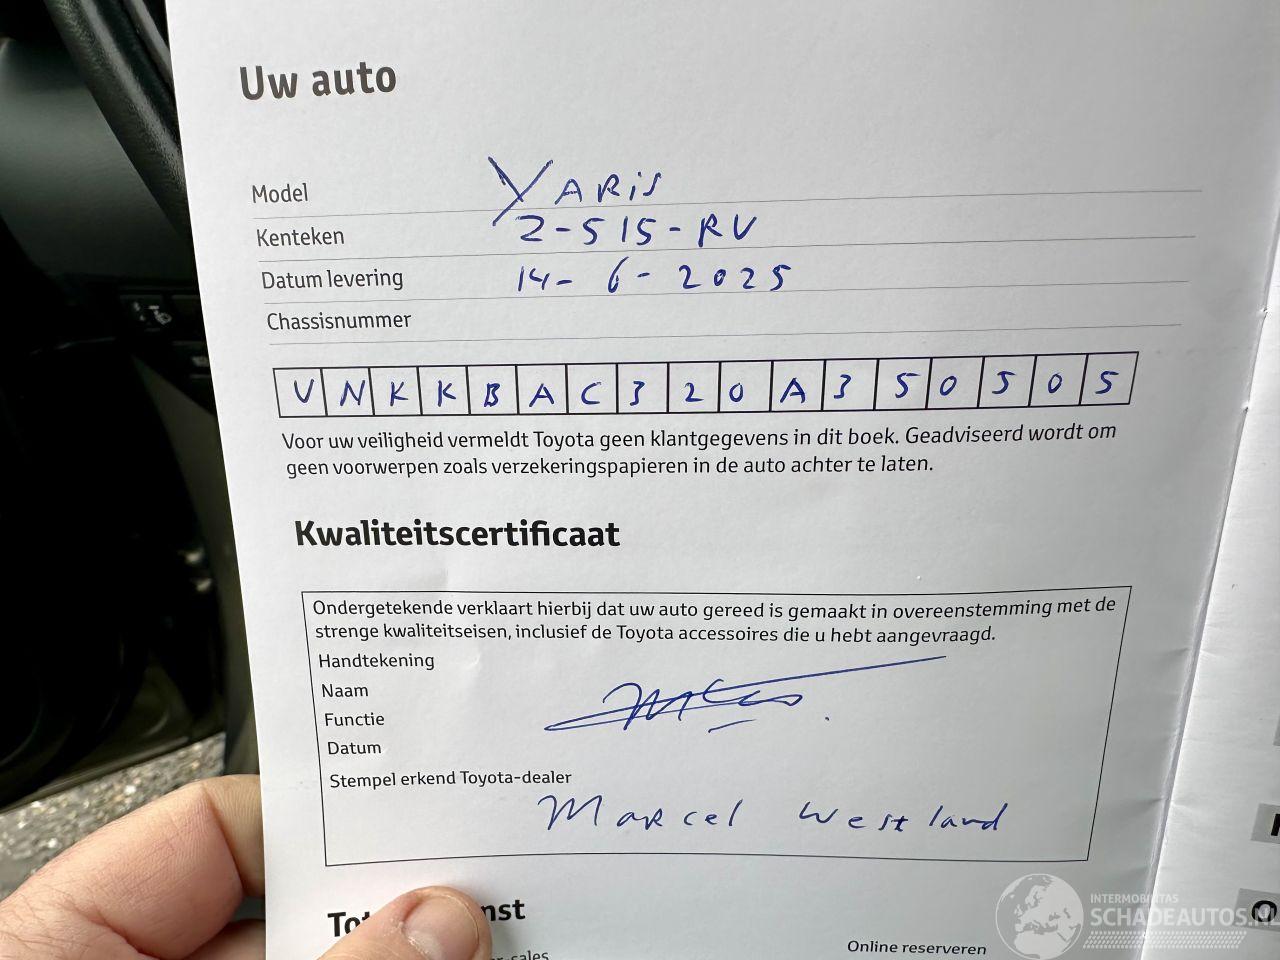 Uw auto
Model YARiS
Kenteken Z-515-RV
Datum levering 14-6-2025
Chassisnummer
V N K K B A C 3 2 0 A 3 5 0 5 0 5
Voor uw veiligheid vermeldt Toyota geen klantgegevens in dit boek. Geadviseerd wordt om
geen voorwerpen zoals verzekeringspapieren in de auto achter te laten.
Kwaliteitscertificaat
Ondergetekende verklaart hierbij dat uw auto gereed is gemaakt in overeenstemming met de
strenge kwaliteitseisen, inclusief de Toyota accessoires die u hebt aangevraagd.
Handtekening
Naam
Functie
Datum
Stempel erkend Toyota-dealer
Marcel Westland
Online reserveren
INTERMOBILITAS
SCHADEAUTOS.NL